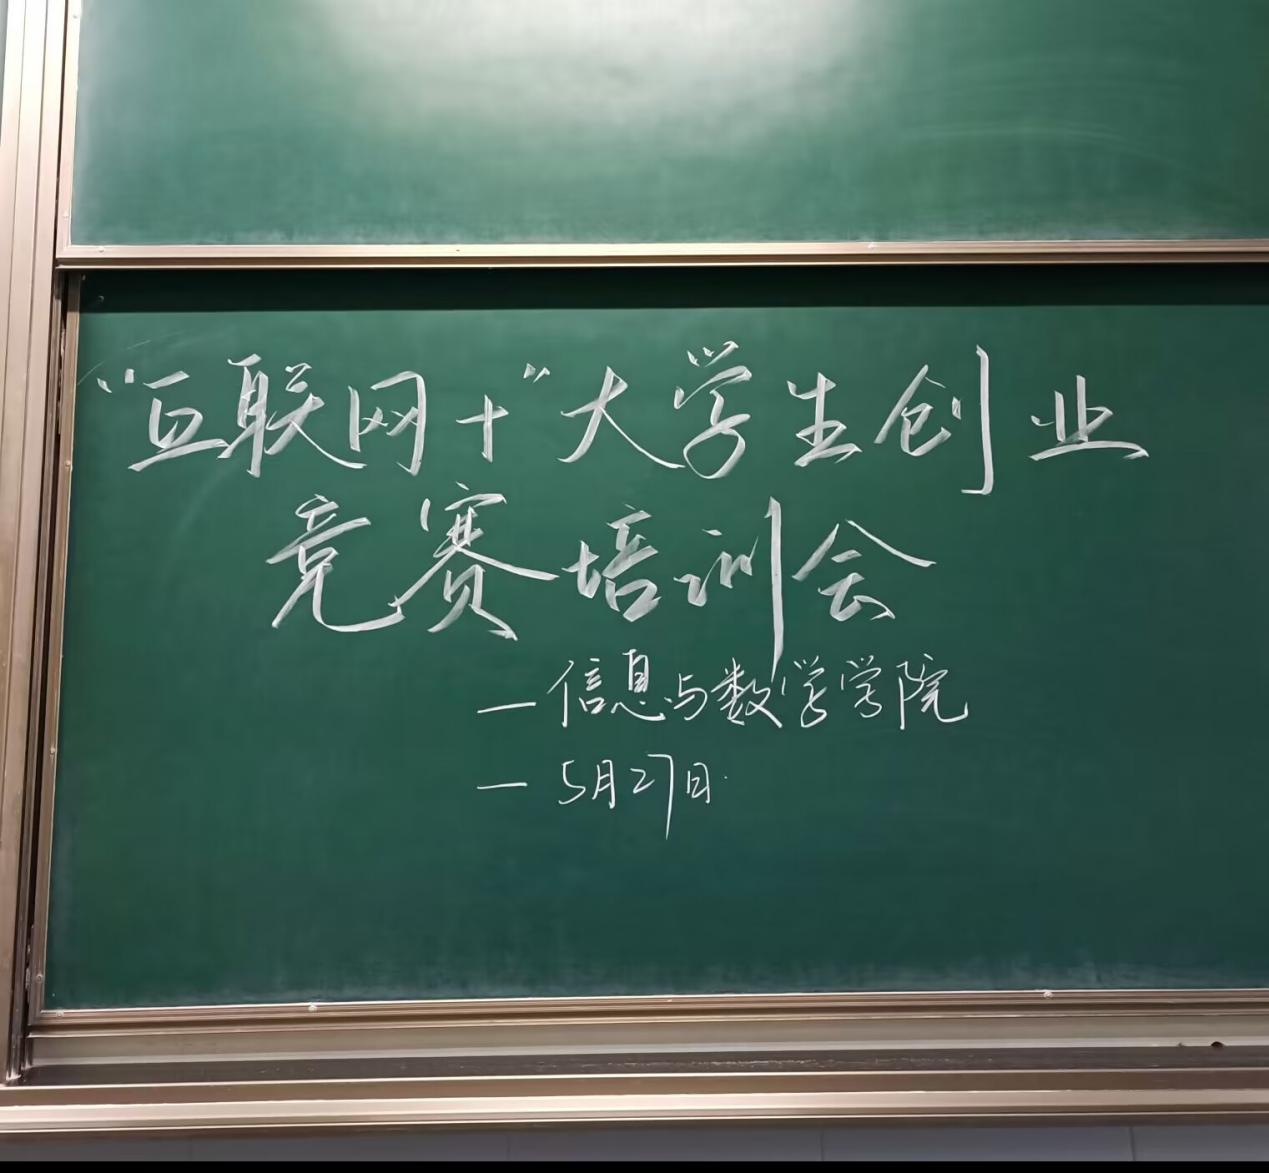 “互联网+”大学生创业
竞赛培训会
—信息与数学学院
—5月27日